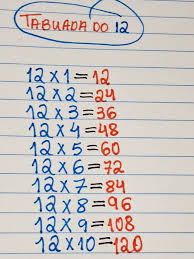 TABUADA DO 12
12 x 1 = 12
12 x 2 = 24
12 x 3 = 36
12 x 4 = 48
12 x 5 = 60
12 x 6 = 72
12 x 7 = 84
12 x 8 = 96
12 x 9 = 108
12 x 10 = 120